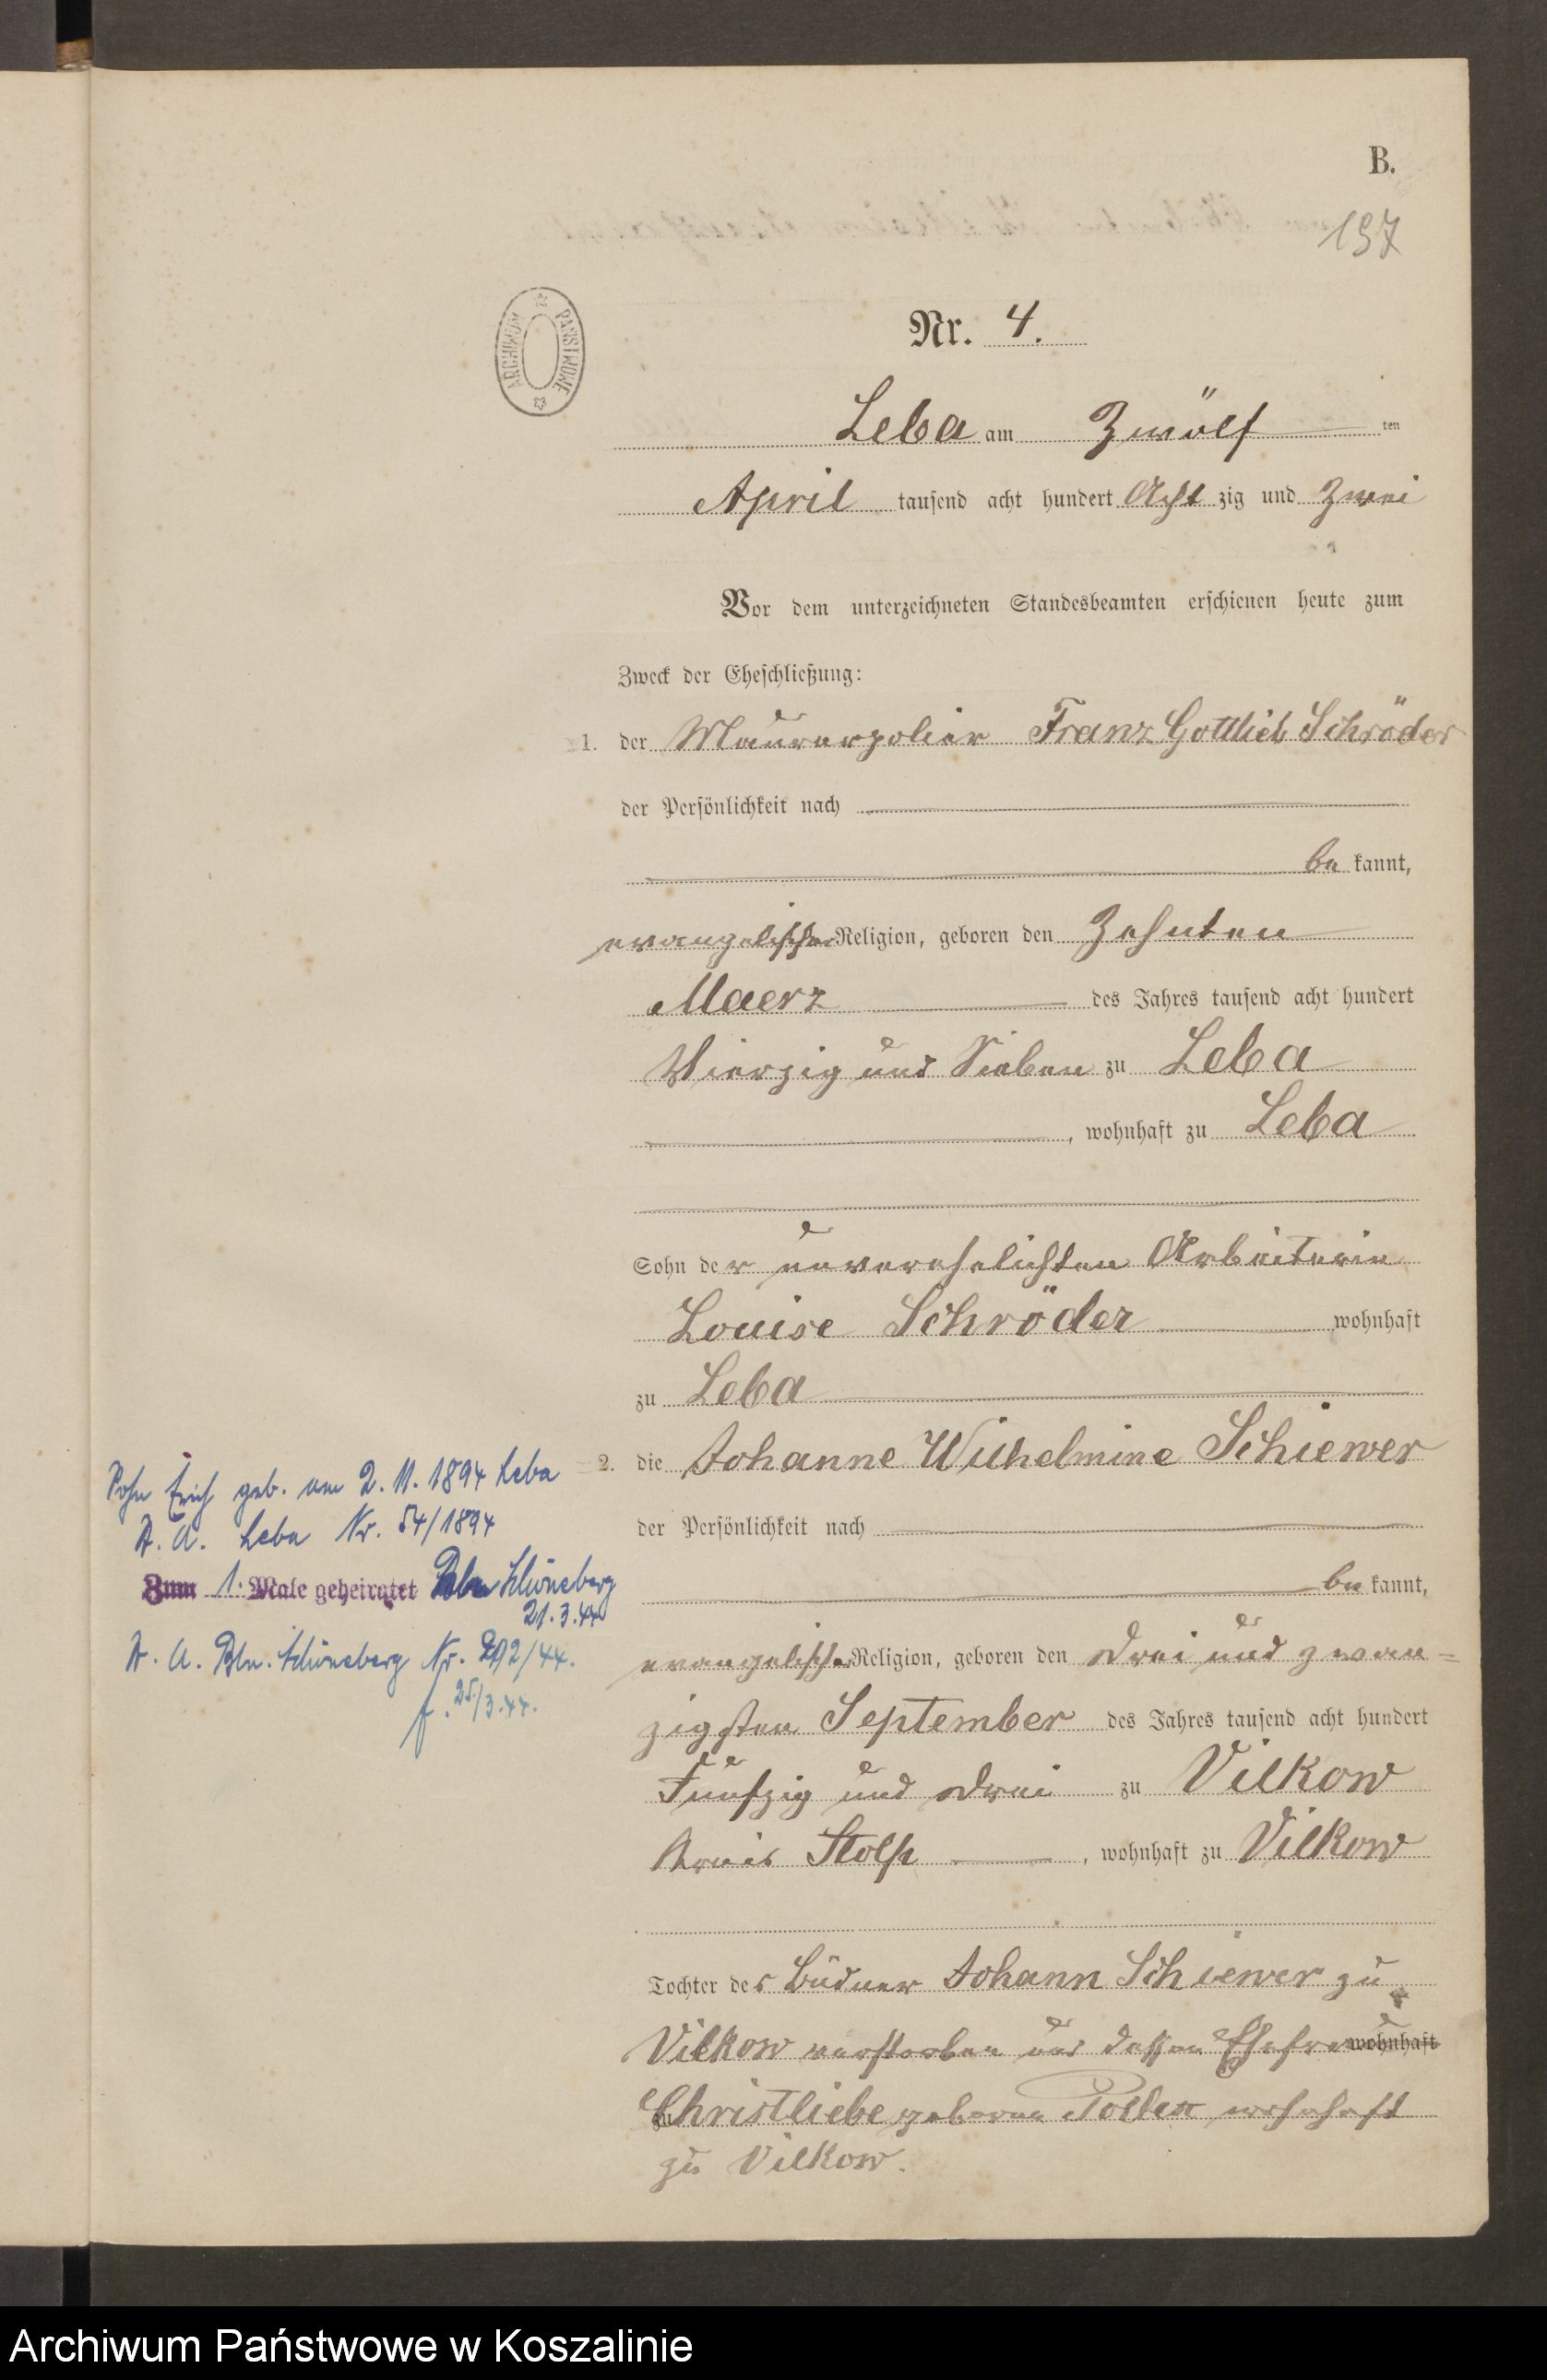 B.
197
ARCHIWUM PAŃSTWOWE
Nr. 4.
Leba am Zwölf ten
April tausend acht hundert Acht zig und Zwei
Vor dem unterzeichneten Standesbeamten erschienen heute zum
Zweck der Eheschließung:
1. der Maurerpolier Franz Gottlieb Schröder
der Persönlichkeit nach
be kannt,
evangelischer Religion, geboren den Zehnten
Maerz des Jahres tausend acht hundert
Vierzig und Sieben zu Leba
, wohnhaft zu Leba
Sohn der unverehelichten Arbeiterin
Louise Schröder wohnhaft
zu Leba
2. die Johanne Wilhelmine Schiewer
der Persönlichkeit nach
be kannt,
evangelischer Religion, geboren den Drei und zwan=
zigsten September des Jahres tausend acht hundert
Fünfzig und Drei zu Vilkow
Kreis Stolp , wohnhaft zu Vilkow
Tochter des Büdner Johann Schiewer zu
Vilkow verstorben und dessen Ehefrau wohnhaft
zu Christliebe geborene wohnhaft
zu Vilkow.
Sohn Erich geb. am 2. 11. 1894 Leba
St. A. Leba Nr. 54/1894
Zum 1. Male geheiratet Bln Schöneberg
21. 3. 44
St. A. Bln. Schöneberg Nr. 292/44.
25/3.44.
Archiwum Państwowe w Koszalinie